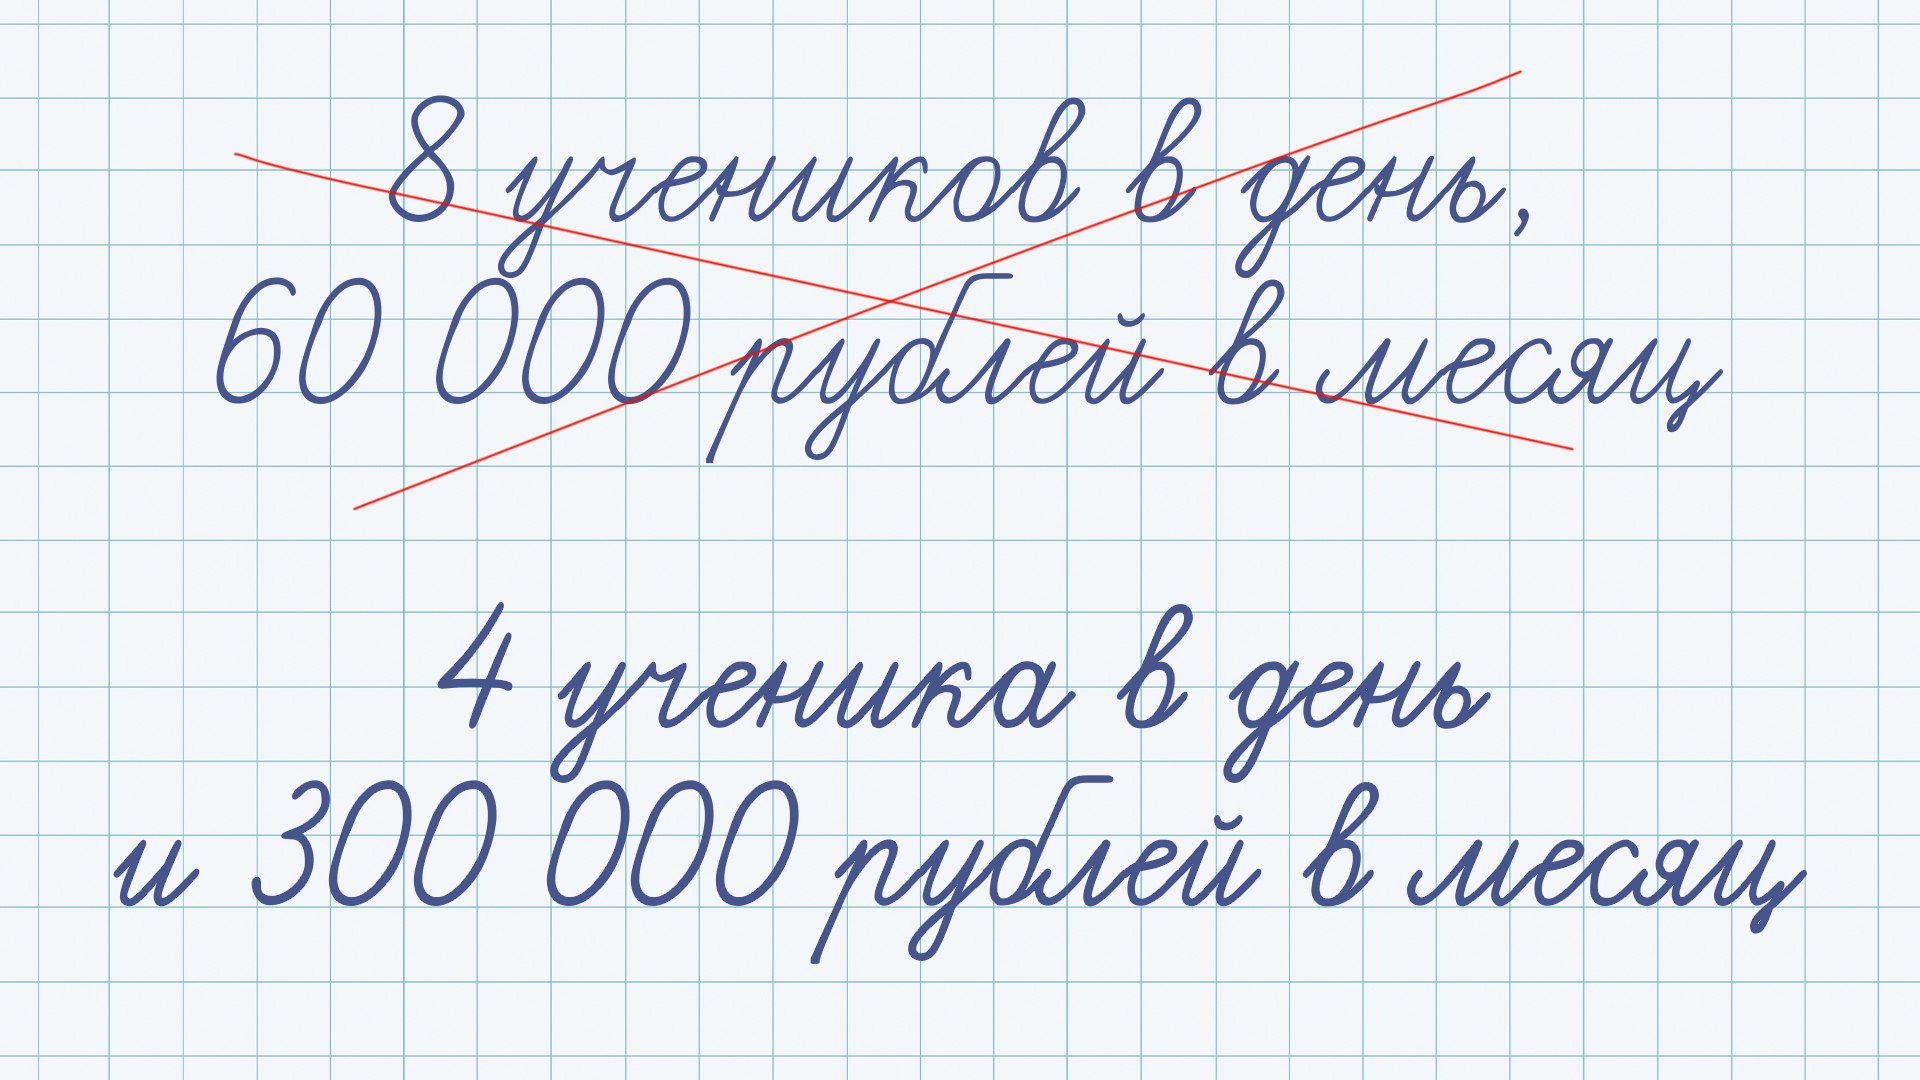 8 учеников в день,
60 000 рублей в месяц
4 ученика в день
и 300 000 рублей в месяц